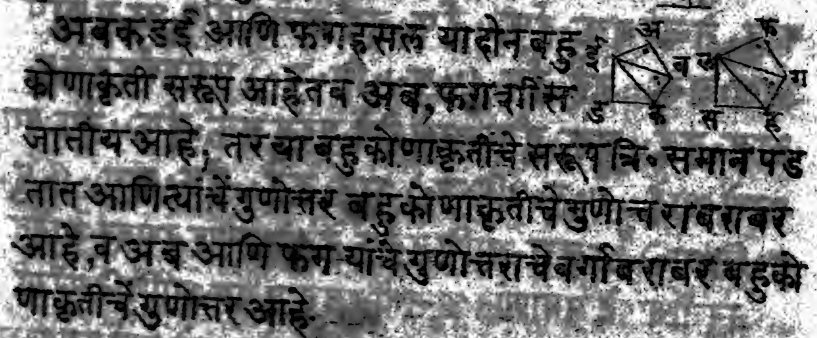 अबकडई आणि फगहसल या दोन बहु
कोणाकृती सरूप आहेत व अब, फग वर्गीस
जातीय आहे, तर या बहुकोणाकृतींचे सरूप त्रि॰ समान पड
तात आणि त्यांचें गुणोत्तर बहुकोणाकृतीचे गुणोत्तराबराबर
आहे, व अब आणि फग यांचे गुणोत्तराचे वर्गाबराबर बहुको
णाकृतीचें गुणोत्तर आहे.
अ
ब
क
ड
ई
फ
ग
ह
स
ल